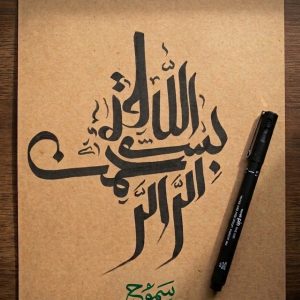 بسم الله الرحمن الرحيم
سموح